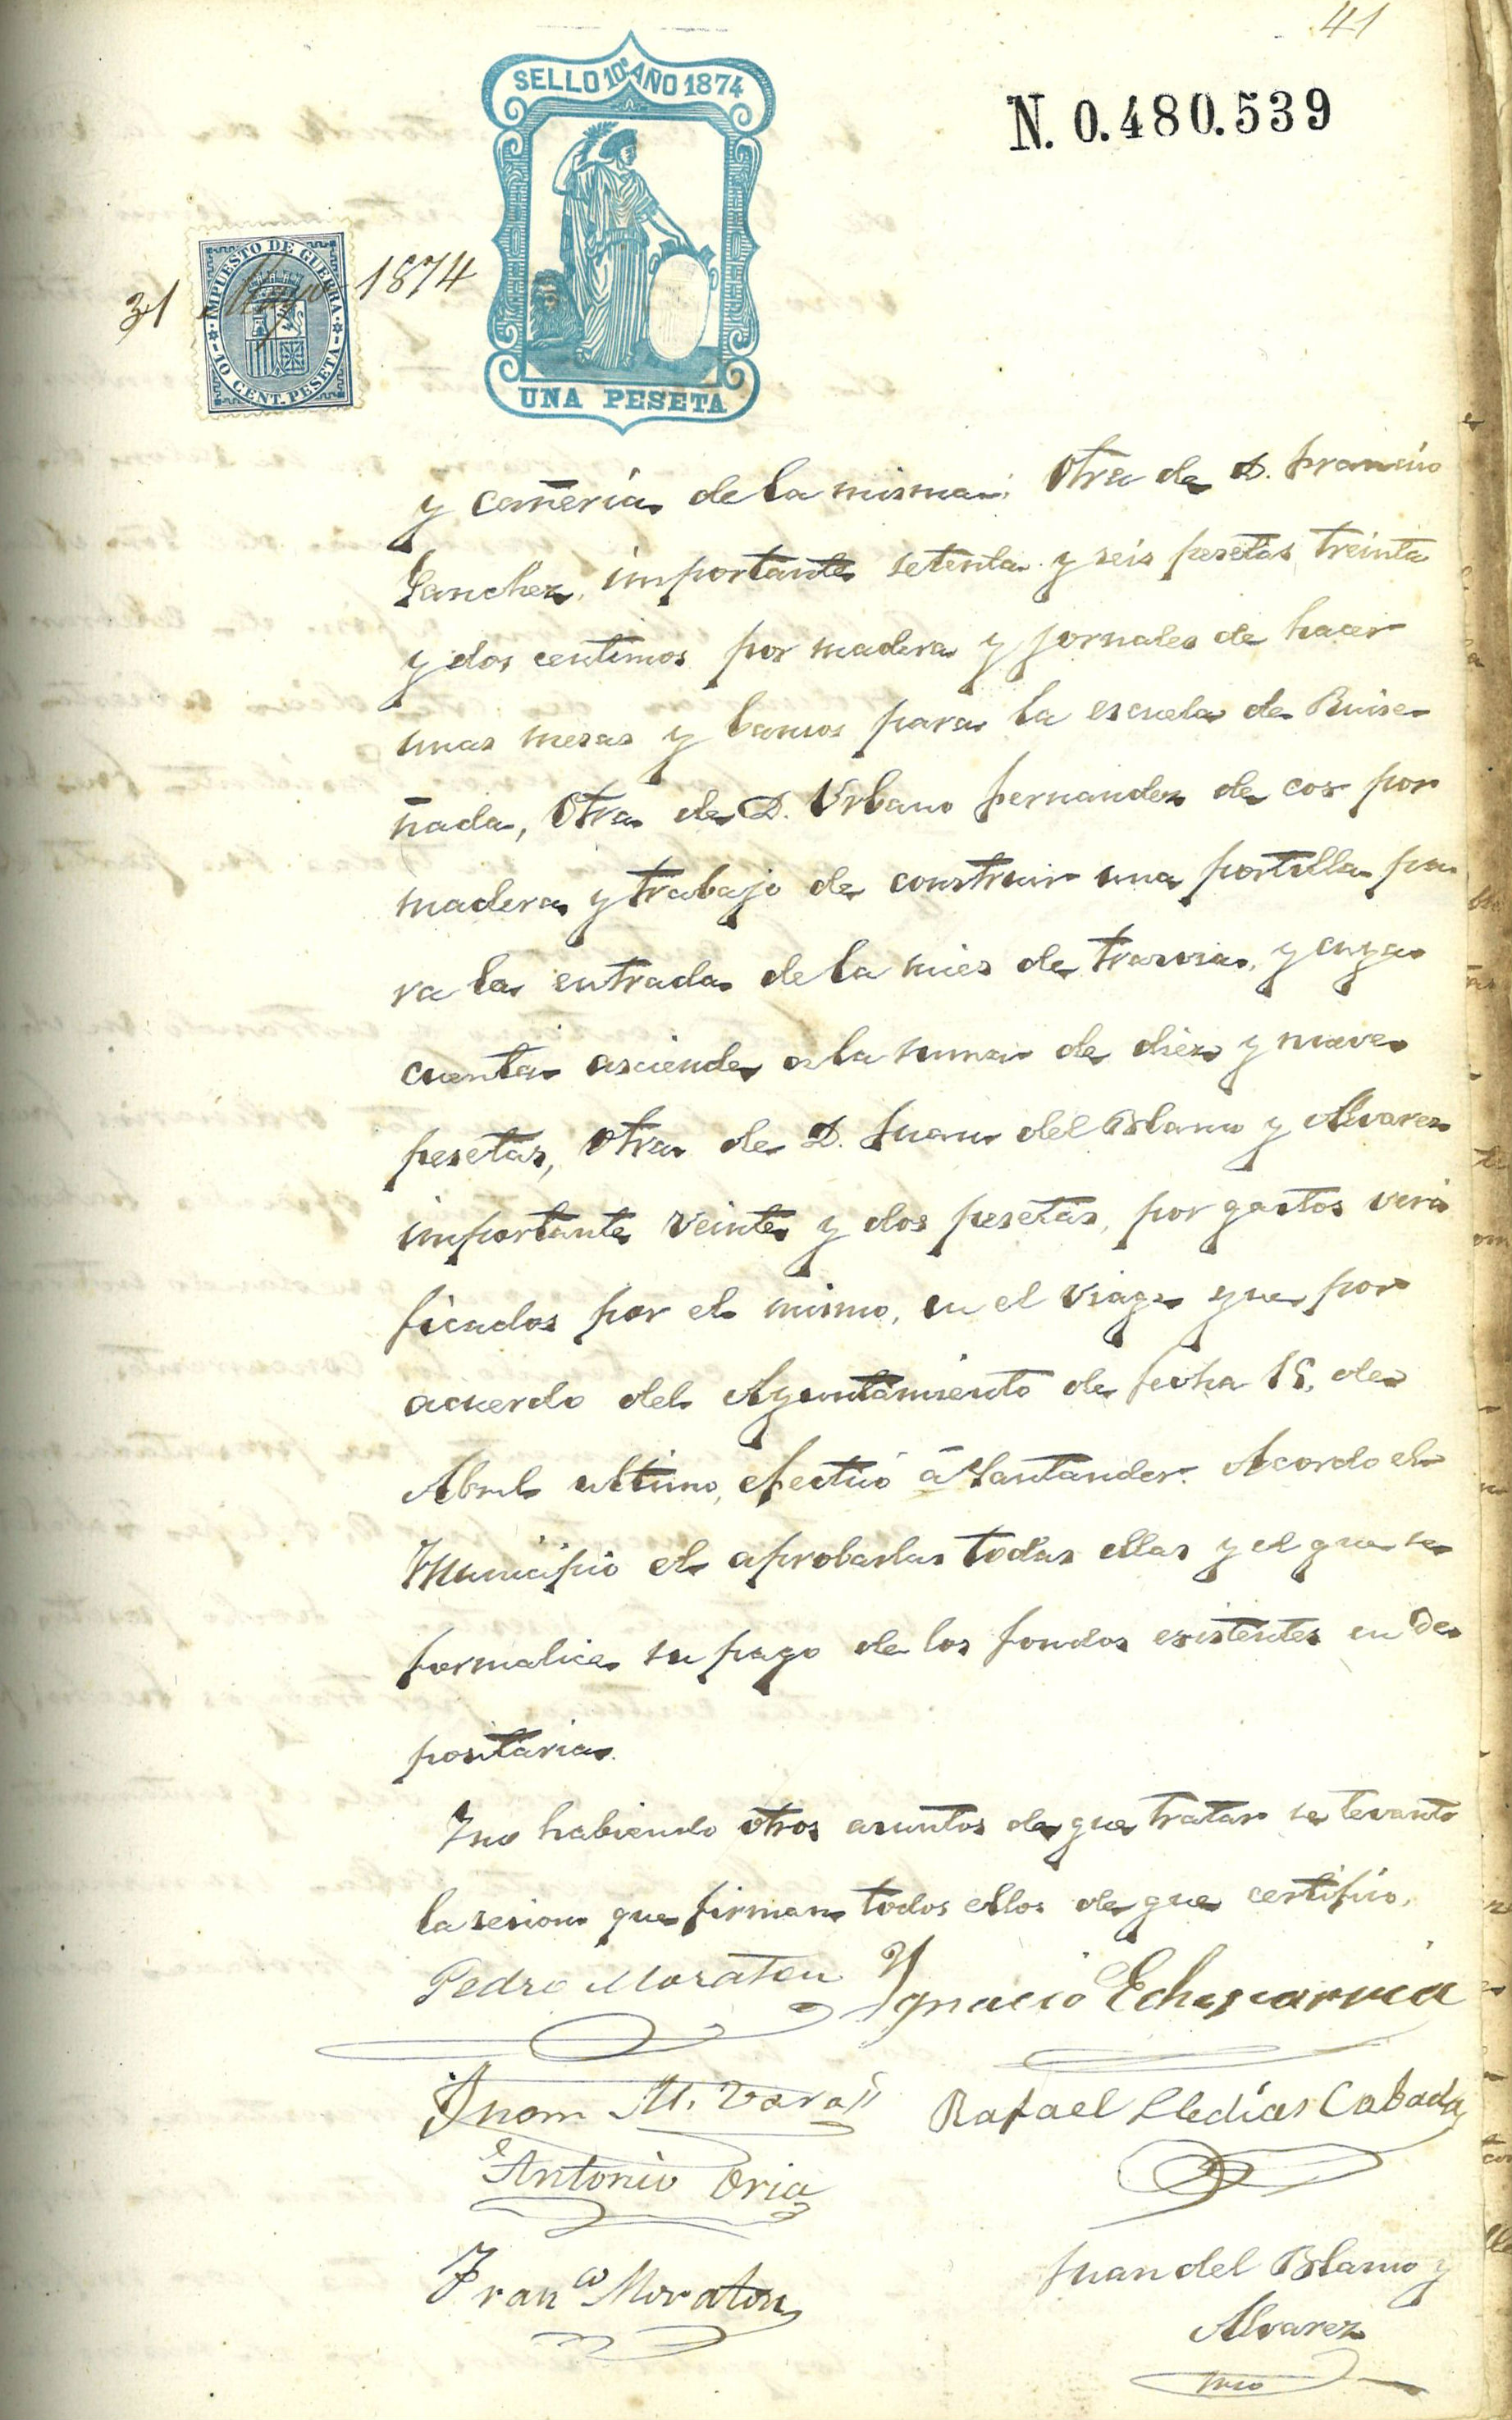 41
SELLO 10º AÑO 1874
N. 0.480.539
IMPUESTO DE GUERRA
10 CENT. PESETA
31 Mayo 1874
UNA PESETA
y cañeria de la misma; Otra de D. Francisco
Sanchez, importante setenta y seis pesetas treinta
y dos centimos por madera y jornales de hacer
unas mesas y bancos para la escuela de Ruise-
ñada, Otra de D. Urbano Fernandez de cos por
madera y trabajo de construir una portilla pa-
ra la entrada de la mies de trasvia, y cuya
cuenta asciende a la suma de diez y nueve
pesetas, Otra de D. Juan del Blanco y Alvarez
importante veinte y dos pesetas, por gastos veri
ficados por el mismo, en el viage que por
acuerdo del Ayuntamiento de fecha 15, de
Abril ultimo, efectuó á Santander. Acordo el
Municipio el aprobarlas todas ellas y el que se
formalice su pago de los fondos existentes en De
positaria.
Y no habiendo otros asuntos de que tratar se levanto
la sesion que firman todos ellos de que certifico.
Pedro Moraton Ygnacio Echevarria
Juan M. Vara Rafael Lledías Cabada
Antonio Oria
Juan del Blanco y
Franco Moraton
Alvarez
srio